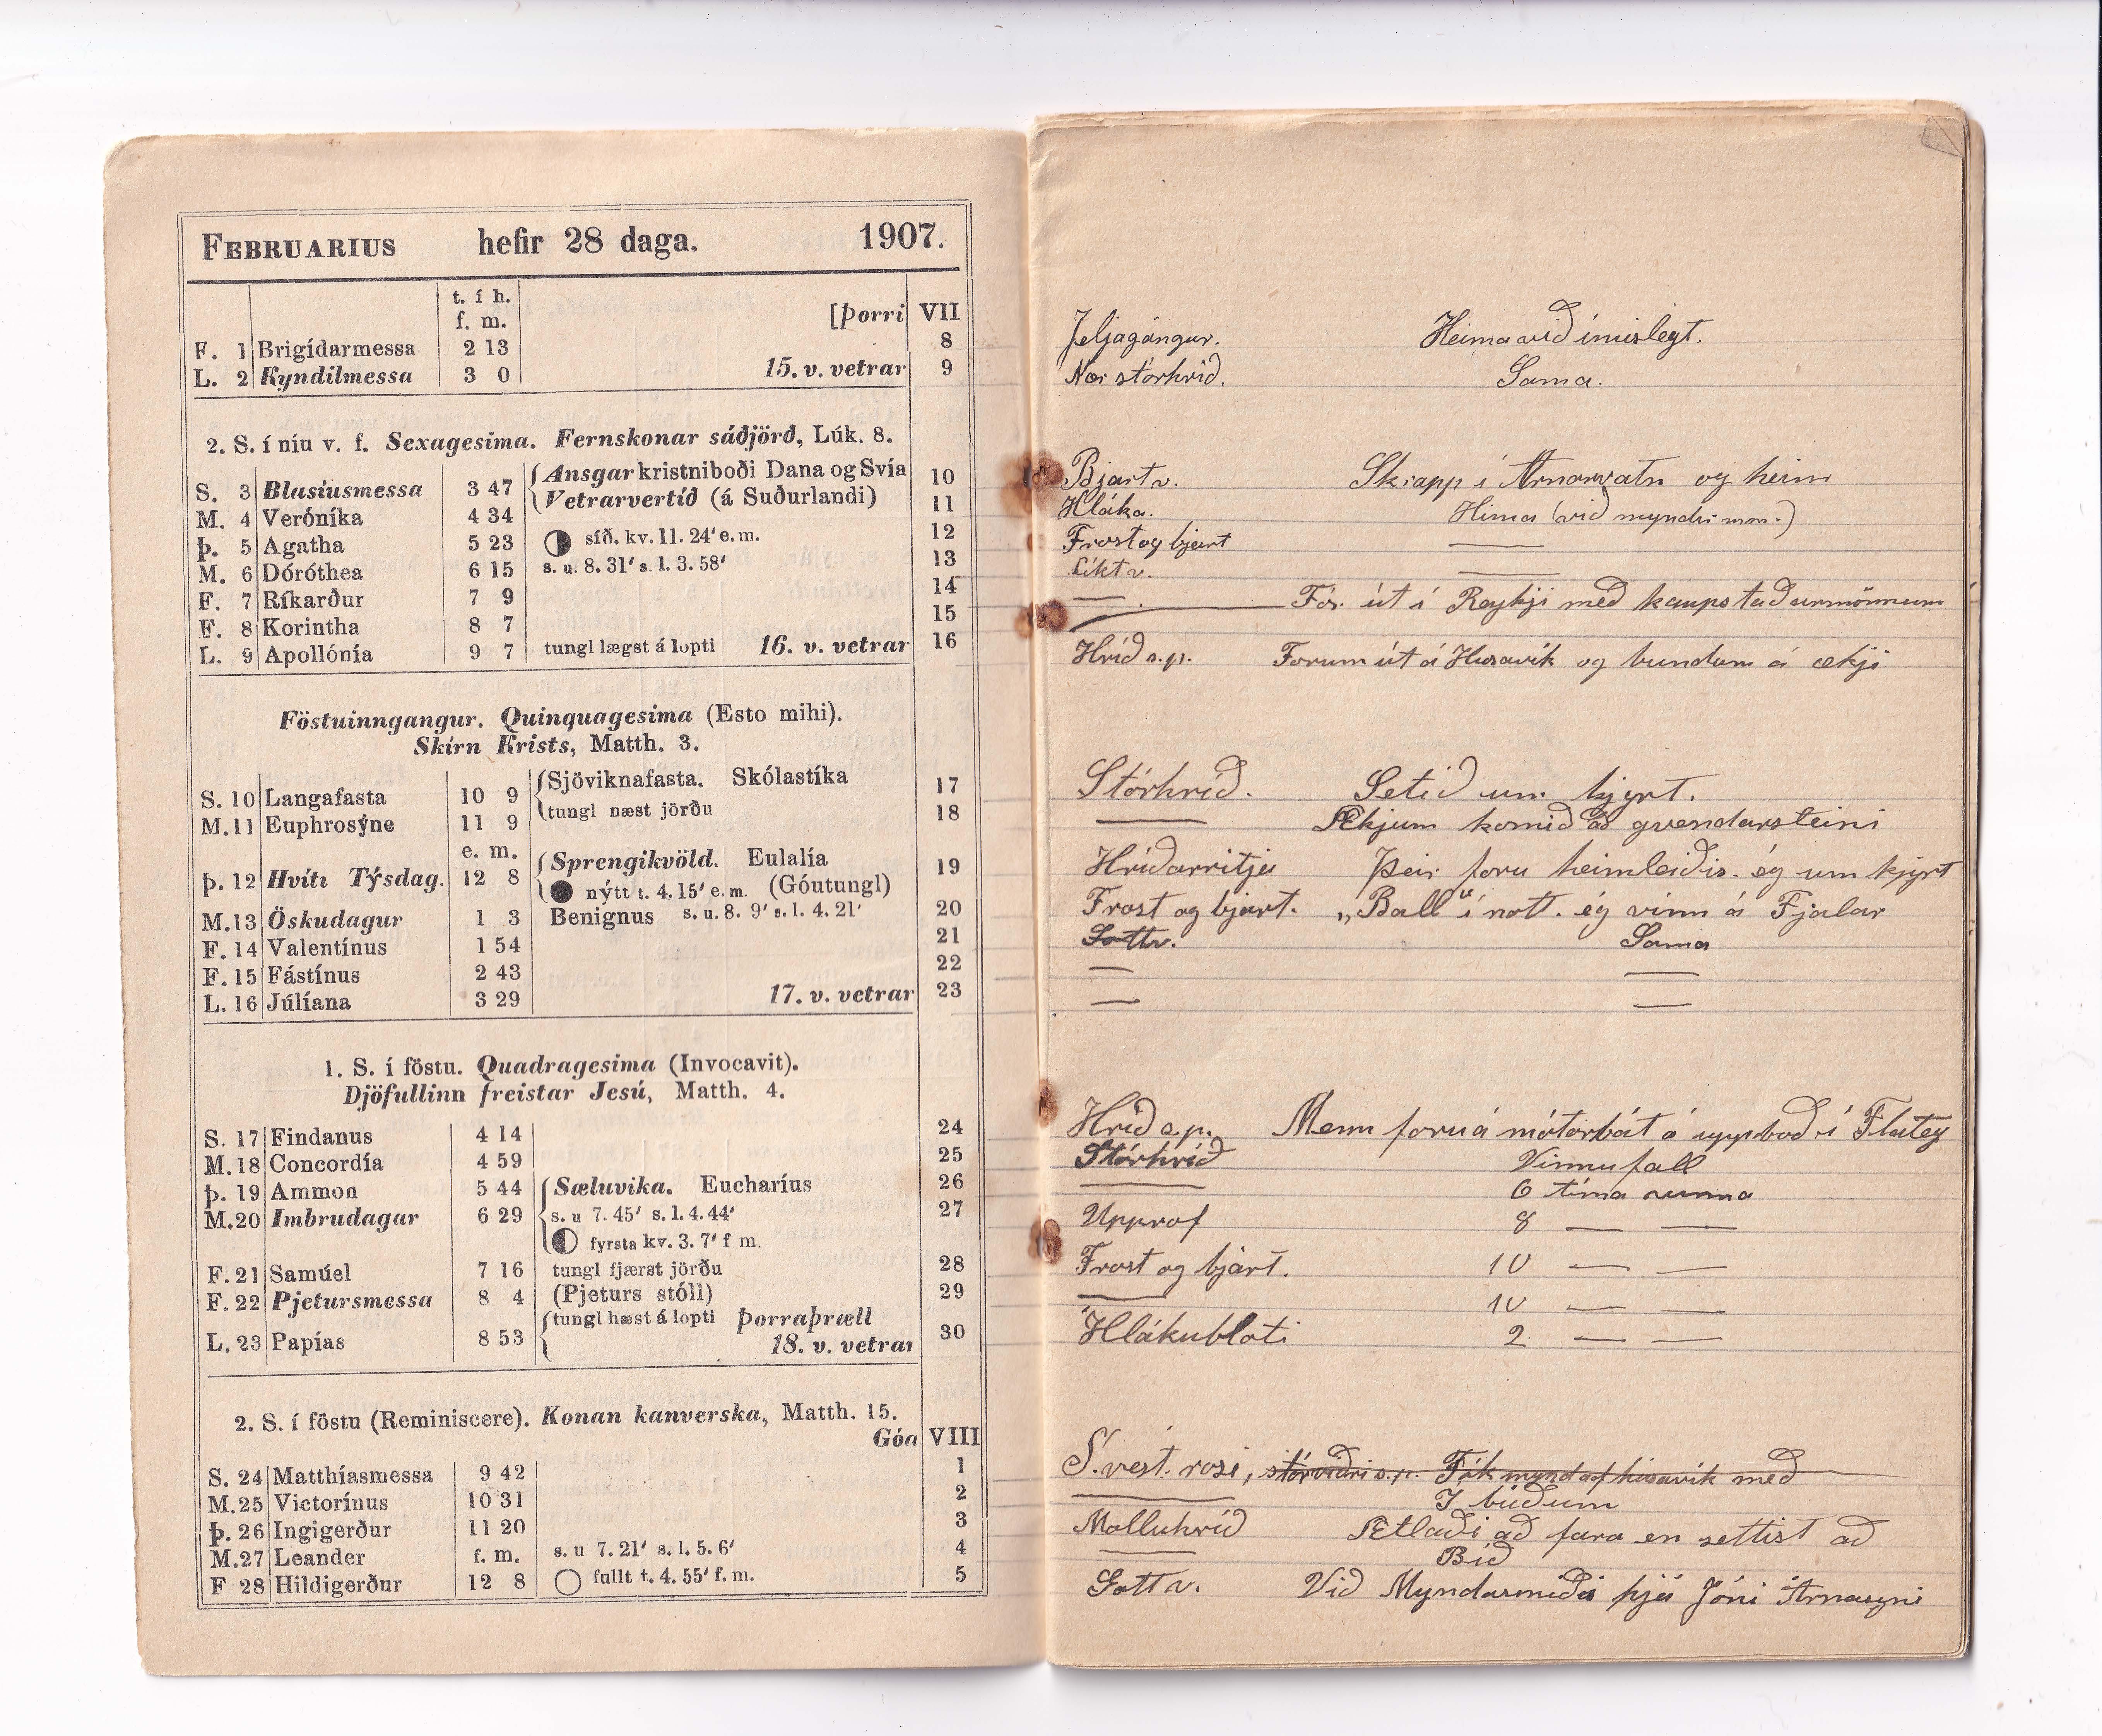 FEBRUARIUS hefir 28 daga. 1907.
t. í h.
f. m. [Þorri VII
F. 1 Brigídarmessa 2 13 8
L. 2 Kyndilmessa 3 0 15. v. vetrar 9
2. S. í níu v. f. Sexagesima. Fernskonar sáðjörð, Lúk. 8.
S. 3 Blasíusmessa 3 47 Ansgar kristniboði Dana og Svía 10
Vetrarvertíð (á Suðurlandi)
M. 4 Verónika 4 34 11
Þ. 5 Agatha 5 23 síð. kv. 11. 24' e. m. 12
M. 6 Dóróthea 6 15 s. u. 8. 31' s. l. 3. 58' 13
F. 7 Ríkarður 7 9 14
F. 8 Korintha 8 7 15
L. 9 Apollónía 9 7 tungl lægst á lopti 16. v. vetrar 16
Föstuinngangur. Quinquagesima (Esto mihi).
Skírn Krists, Matth. 3.
S. 10 Langafasta 10 9 Sjöviknafasta. Skólastíka 17
M. 11 Euphrosýne 11 9 tungl næst jörðu 18
e. m.
Þ. 12 Hvíti Týsdag. 12 8 Sprengikvöld. Eulalía 19
nýtt t. 4. 15' e. m. (Góutungl)
M. 13 Öskudagur 1 3 Benignus s. u. 8. 9' s. l. 4. 21' 20
F. 14 Valentínus 1 54 21
F. 15 Fástínus 2 43 22
L. 16 Júlíana 3 29 17. v. vetrar 23
1. S. í föstu. Quadragesima (Invocavit).
Djöfullinn freistar Jesú, Matth. 4.
S. 17 Findanus 4 14 24
M. 18 Concordía 4 59 25
Þ. 19 Ammon 5 44 Sæluvika. Eucharíus 26
M. 20 Imbrudagar 6 29 s. u 7. 45' s. l. 4. 44' 27
fyrsta kv. 3. 7' f m.
F. 21 Samúel 7 16 tungl fjærst jörðu 28
F. 22 Pjetursmessa 8 4 (Pjeturs stóll) 29
L. 23 Papías 8 53 tungl hæst á lopti Þorraþræll 30
18. v. vetrar
2. S. í föstu (Reminiscere). Konan kanverska, Matth. 15.
Góa VIII
S. 24 Matthíasmessa 9 42 1
M. 25 Victorínus 10 31 2
Þ. 26 Ingigerður 11 20 3
M. 27 Leander f. m. s. u 7. 21' s. l. 5. 6' 4
F 28 Hildigerður 12 8 fullt t. 4. 55' f. m. 5
Jeljagángur. Heima við ímislegt.
Nor stórhríð. Sama.
Bjart v. Skrapp í Arnarvatn og heim
Hláka. Hima (við myndir mm.)
Frost og bjart —
Líkt v. —
— Fór út í Reykji með kaupstaðarmönnum
Hríð s.p. Forum út á Husavík og bundum á ækji
Stórhríð. Setið um kjyrt.
— Ækjum komið að gvendarsteini
Hríðarritja Þeir foru heimleiðis. ég um kjyrt
Frost og bjart. „Ball“ í nott. ég vinn á Fjalar
Gott v. Sama
— —
— —
Hríð s.p. Menn foru á mótorbát á uppboð í Flatey
Stórhríð Vinnufall
— 6 tíma vinna
Upprof 8 — —
Frost og bjart. 10 — —
— 10 — —
Hlákubloti 2 — —
S.vest. rosi, stórviðri s.p. Tók mynd af húsavík með
— I búðum
Molluhríð Ætlaði að fara en settist að
— Bið
Gott v. Við Myndasmíði hjá Jóni Árnasyni